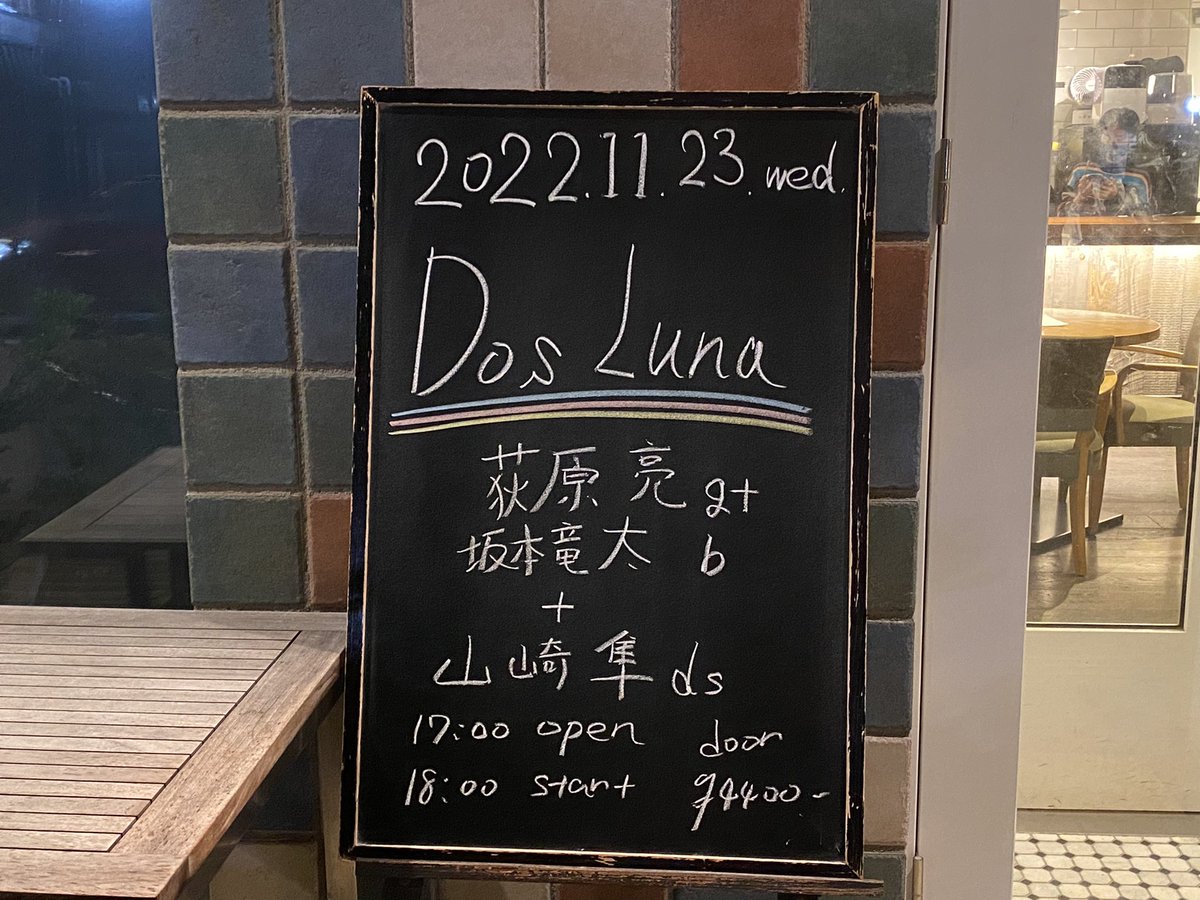 2022.11.23.wed.
Dos Luna
荻原 亮 gt
坂本竜太 b
+
山崎 隼 ds
17:00 open door
18:00 start ¥4400-